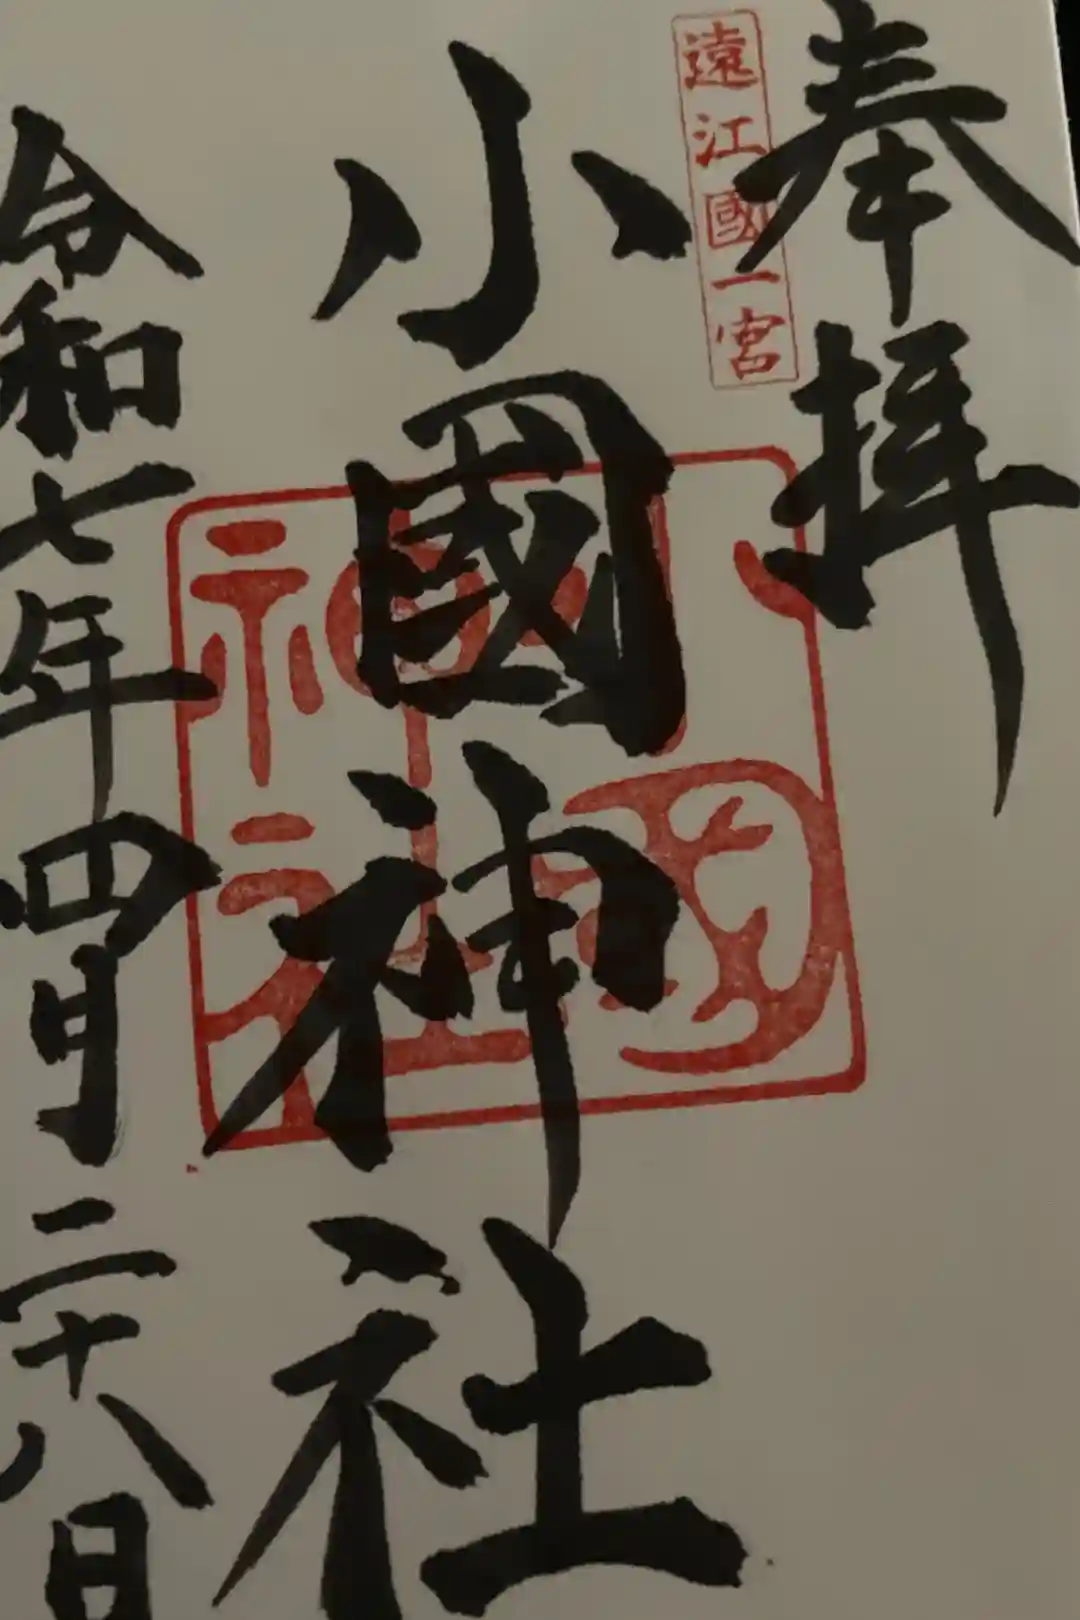 奉拝
遠江國一宮
小國神社
小國神社
令和七年四月二十八日